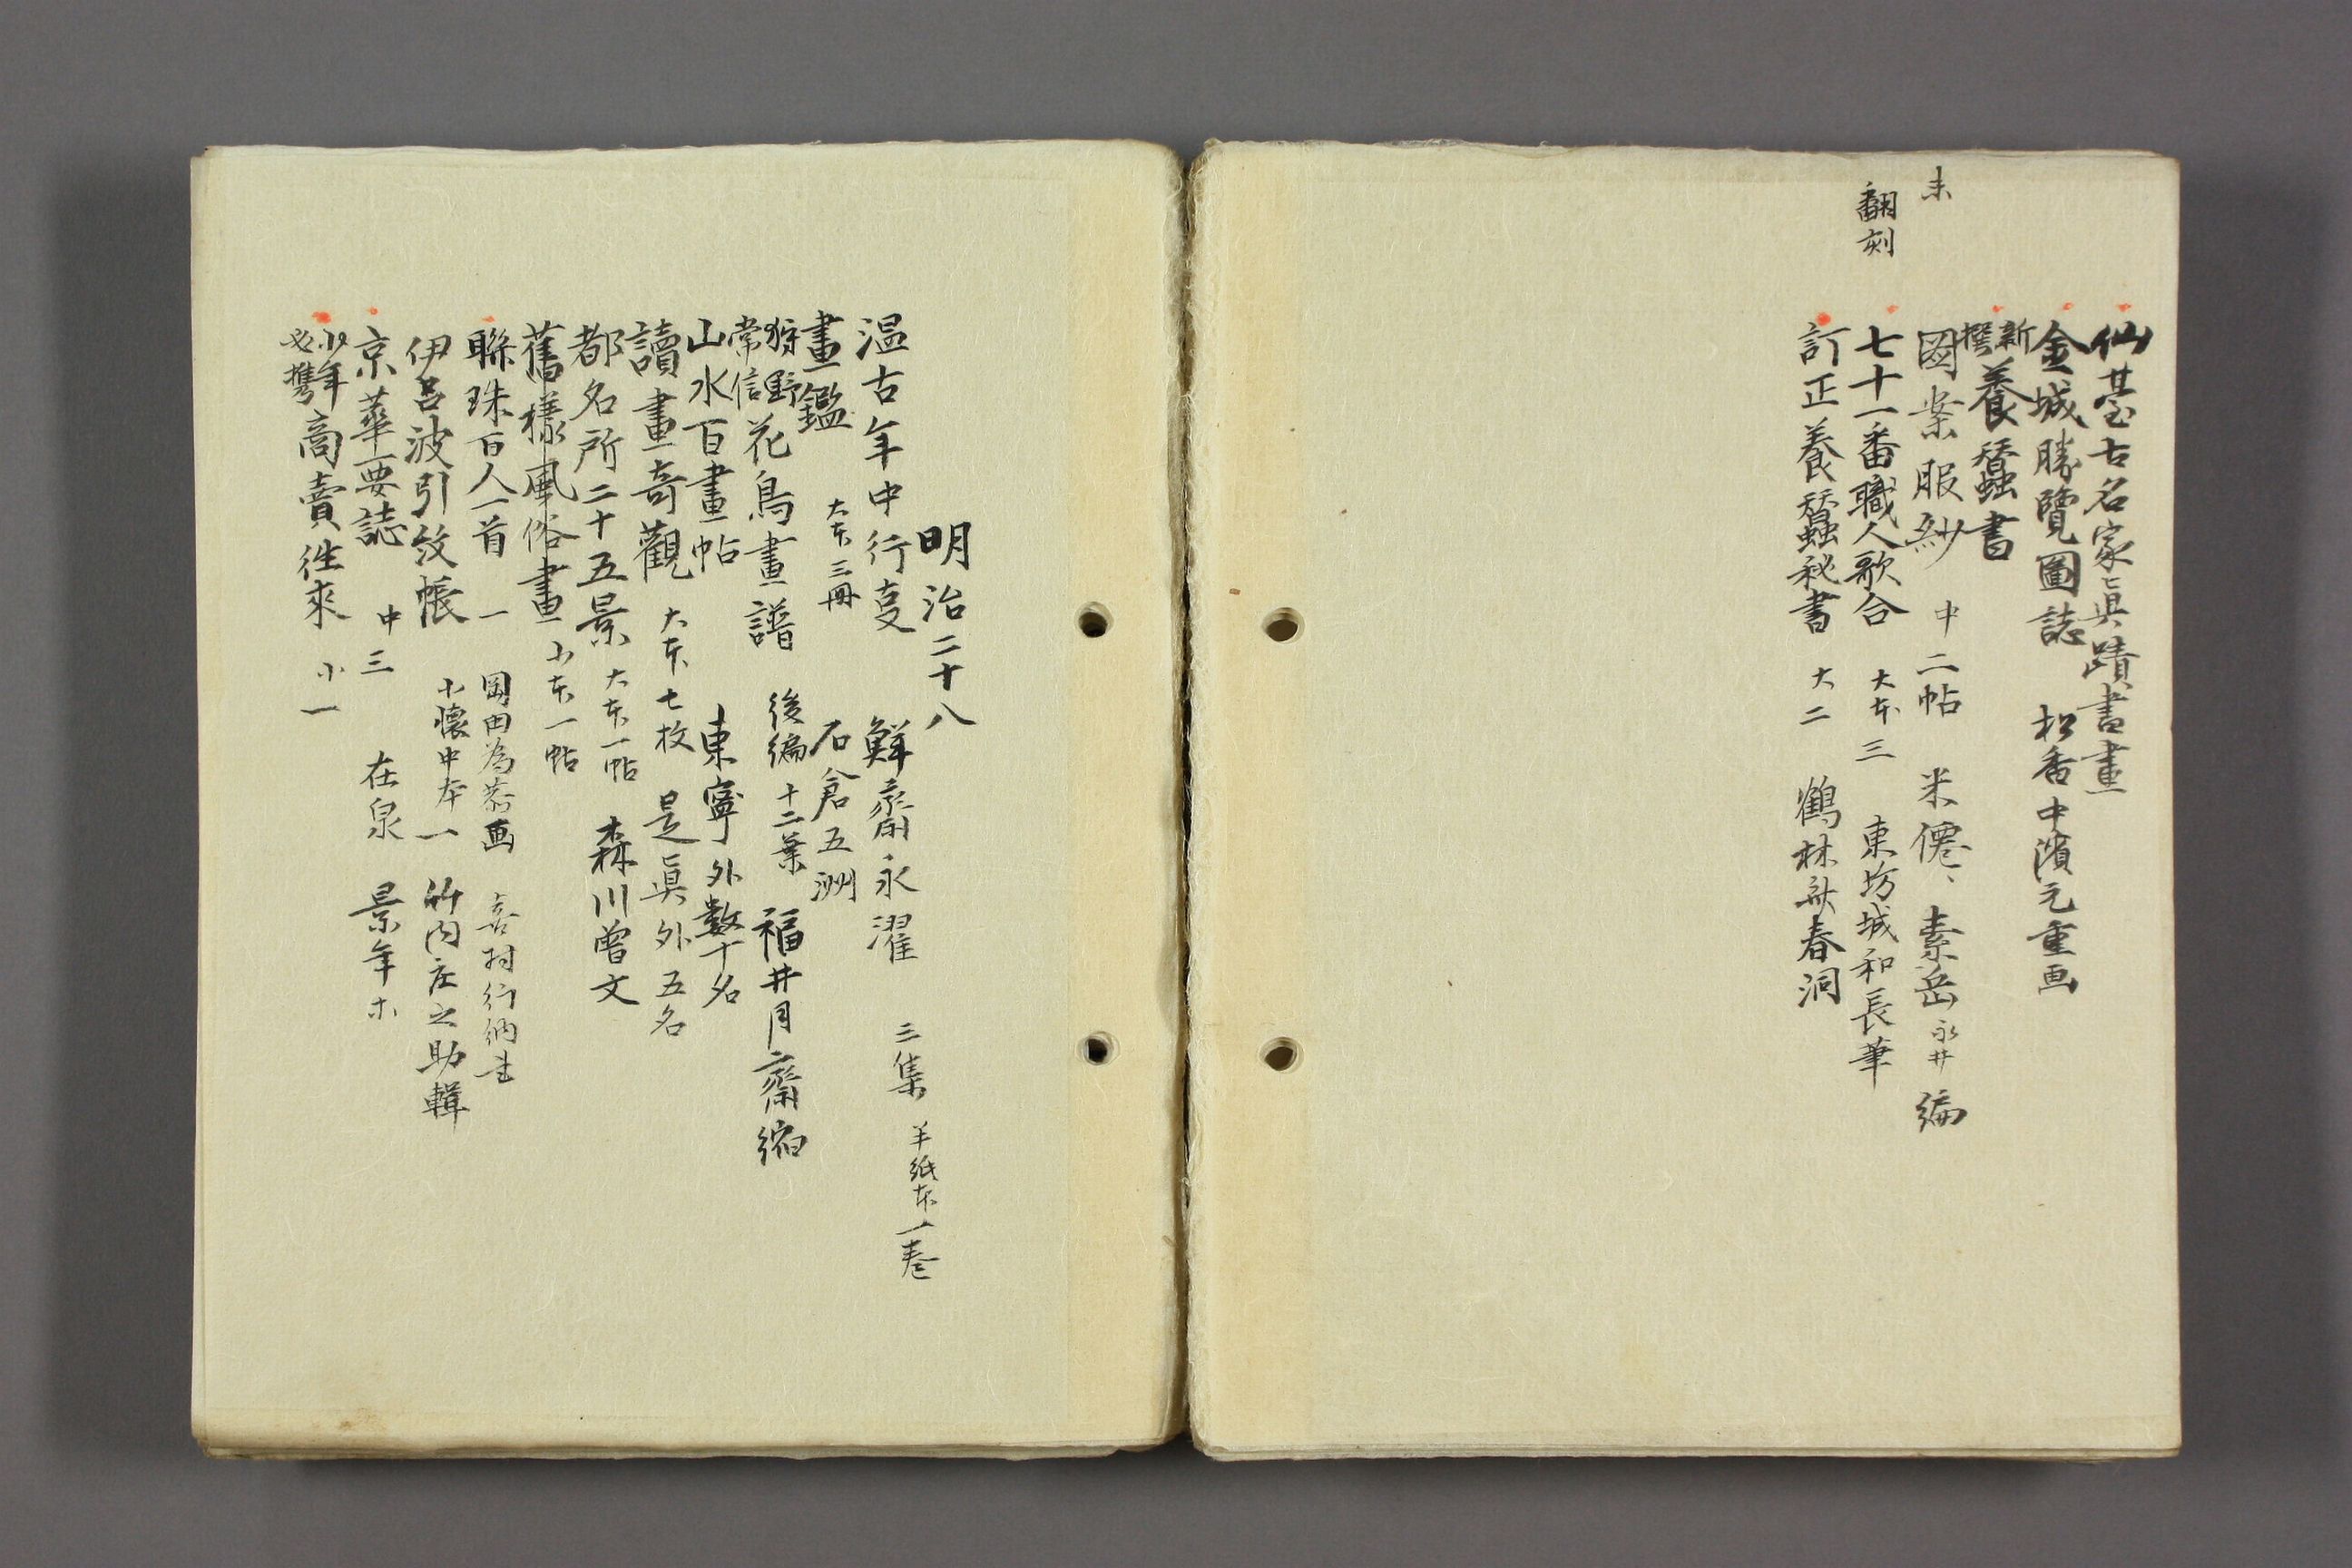 仙臺古名家眞蹟書畫
金城勝覽圖誌 松香中濱元重画
新撰養蠶書
未 図案服紗 中二帖 米僊、素岳永井編
翻刻 七十一番職人歌合 大本三 東坊城和長筆
訂正養蠶秘書 大二 鶴林舎春洞
明治二十八
温古年中行叓 鮮齋永濯 三集 半紙本一巻
畫鑑 大本三冊 石倉五洲
狩野常信花鳥畫譜 後編十二葉 福井月齋縮
山水百畫帖 東寧外数十名
讀畫奇觀 大本七枚 是眞外五名
都名所二十五景 大本一帖 森川曽文
舊様風俗畫 小本一帖
聯珠百人一首 一 岡田為恭画 喜村行納
伊呂波引紋帳 小懐中本一 竹内庄之助輯
京華要誌 中三 在泉 景年ホ
少年必携商賣徃来 小一